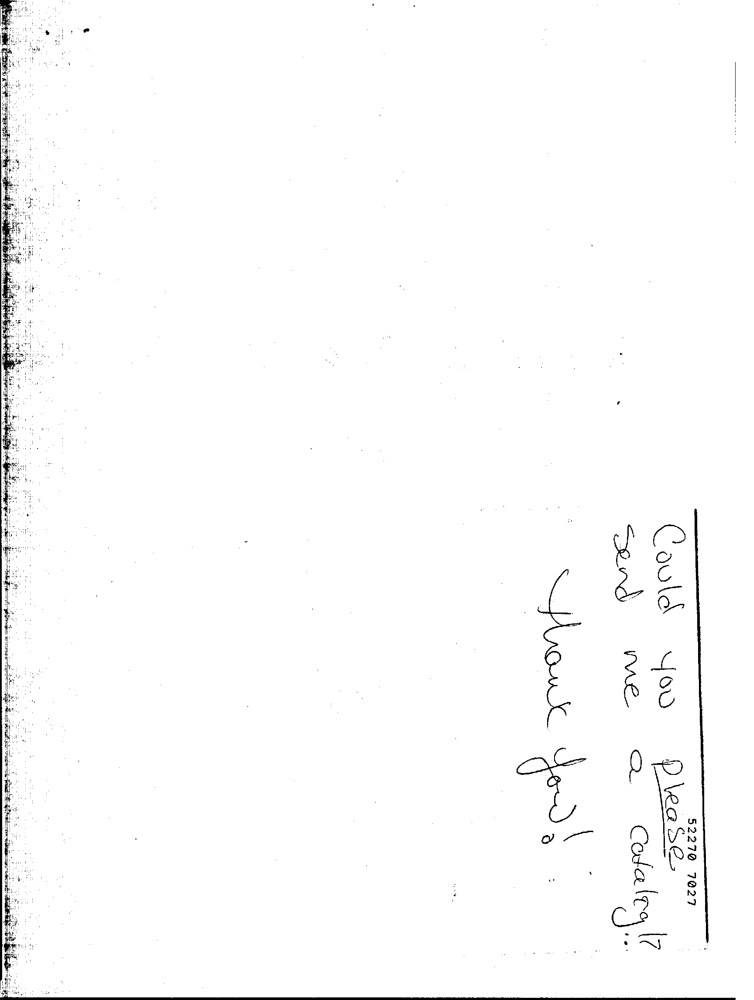 52270 7027
Could you please
send me a catalog!?...
Thank you!